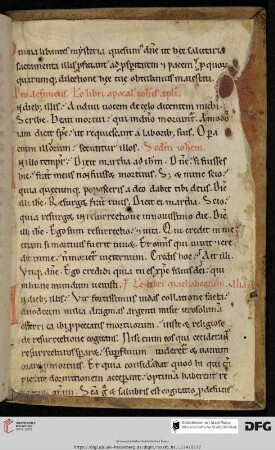 diuina libantes mysteria quesumus dne ut hec salutaria
sacramenta illis proficiant ad prosperitatem et pacem pro quorum
quarumque dilectione hec tue obtulimus maiestati.
Pro defunctis. Lc libri apocal iohis apli.
In dieb; illis: Audiui uocem de celo dicentem michi
Scribe. Beati mortui: qui in dno moriuntur. Amodo
iam dicit sps: ut requiescant a laborib; suis. Opera
enim illorum: secuntur illos. Scdm iohem.
In illo tempr: Dixit martha ad ihm. Dne si fuisses
hic: frater meus non fuisset mortuus. Sz et nunc scio
quia quecumque poposceris a deo dabit tibi deus. Dic
illi ihc. Resurget frater tuus. Dicit ei martha. Scio
quia resurget in resurrectione in nouissimo die. Dic
illi ihc. Ego sum resurrectio et uita. Qui credit in me
etiam si mortuus fuerit uiuet. Et omis qui uiuit et cre
dit in me non morietur in eternum. Credis hoc? Ait illi.
Utiq; dne. Ego credidi quia tu es xpc filius dei: qui
in hunc mundum uenisti. Lc libri machabeorum
In dieb; illis: Vir fortissimus iudas collatione facta
duodecim milia dragmas argenti misit ierosolimam
offerri ea ibi pro peccatis mortuorum iuste et religiose
de resurrectione cogitans. Nisi enim eos qui ceciderant
resurrecturos speraret superfluum uideretur et uanum
orare pro mortuis. Et quia considerabat quod hi qui cum
pietate dormitionem acceperant optimam haberent re
positam gratiam. Sancta ergo et salubris est cogitatio pro defunctis
UNIVERSITÄTS-
BIBLIOTHEK
HEIDELBERG
Bibliotheken der Stadt Mainz
Wissenschaftliche Stadtbibliothek
DFG